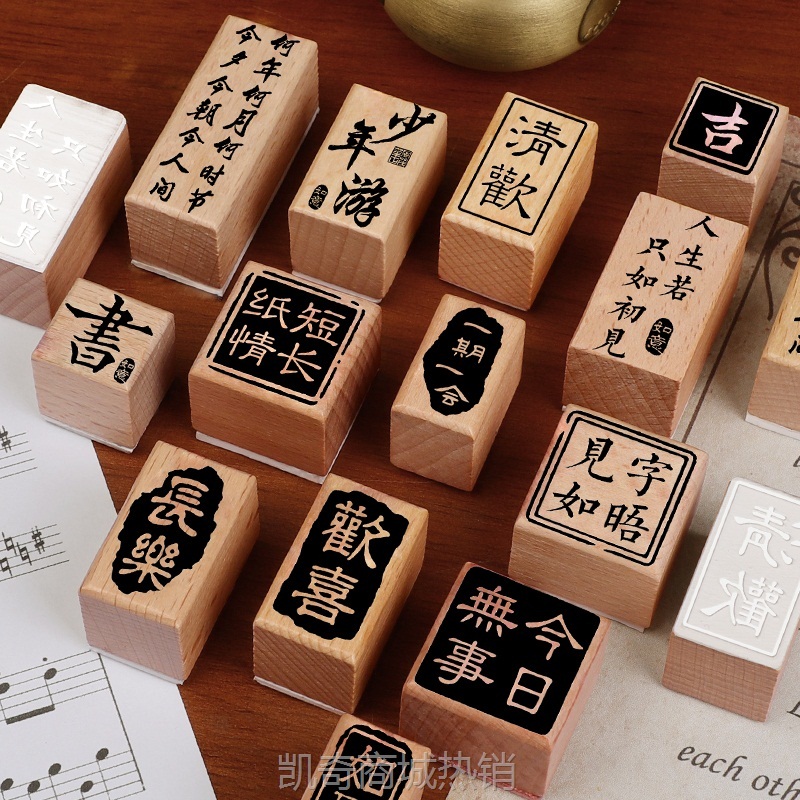 何年何月何时节
今夕今朝今人间
少年游
如意
清歡
吉
人生若
只如初見
如意
書
如意
纸短
情长
一期一会
見字
如晤
長樂
歡喜
今日
無事
each oth
凯奇商城热销